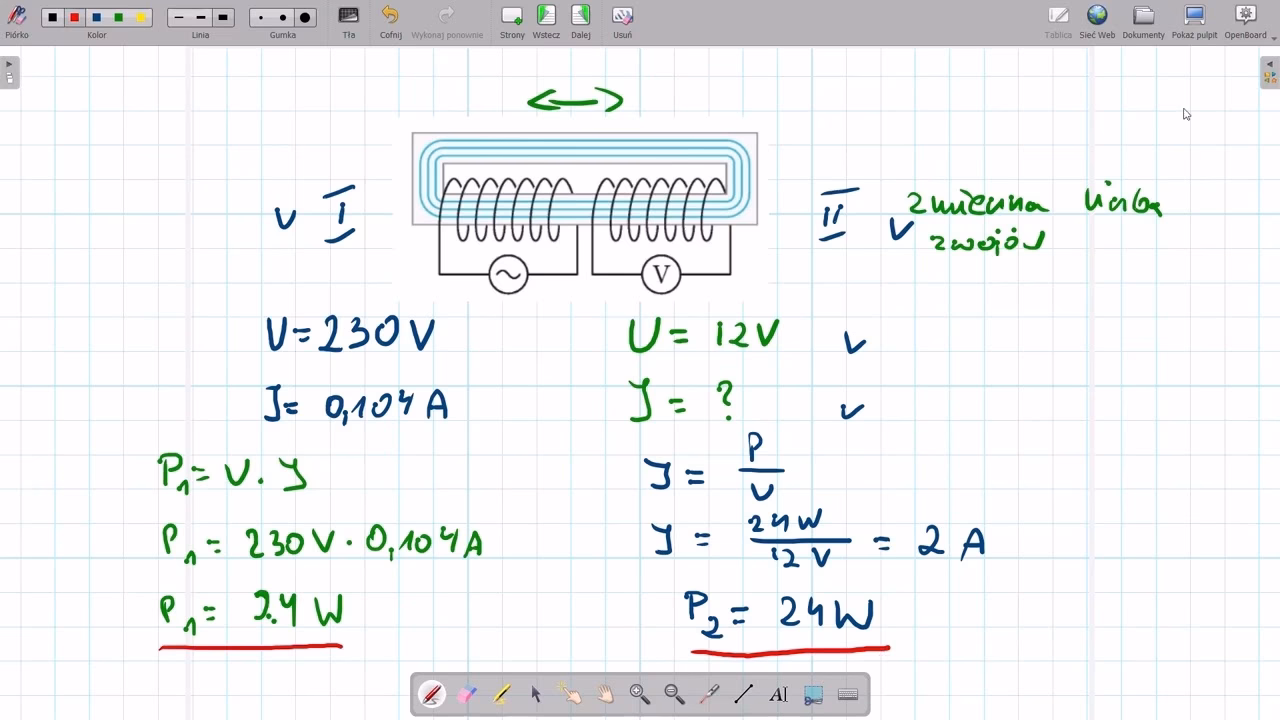 Piórko Kolor Linia Gumka Tła Cofnij Wykonaj ponownie Strony Wstecz Dalej Usuń Tablica Sieć Web Dokumenty Pokaż pulpit OpenBoard
v I
II v zmienna liczba
zwojów
~ V
U = 230 V
U = 12V v
J = 0,104 A
J = ? v
P₁ = U · J
J = P / U
P₁ = 230 V · 0,104 A
J = 24 W / 12 V = 2 A
P₁ = 24 W
P₂ = 24 W
AI